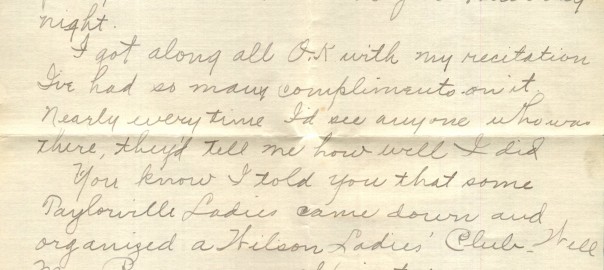 night.
I got along all O.K with my recitation
I've had so many compliments on it,
Nearly everytime I'd see anyone who was
there, they'd tell me how well I did
You know I told you that some
Taylorville Ladies came down and
organized a Wilson Ladies' Club. Well